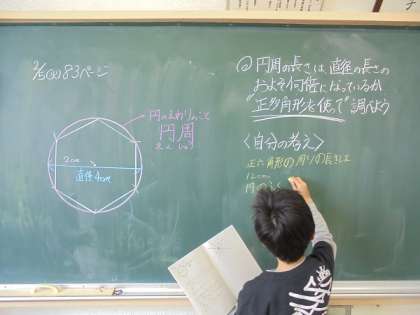 2/5(火)83ページ
円のまわりのこと
円周
えんしゅう
2cm
直径4cm
円周の長さは、直径の長さの
およそ何倍になっているか
"正多角形を使って"調べよう
<自分の考え>
正六角形の周りの長さは
12cm
円の